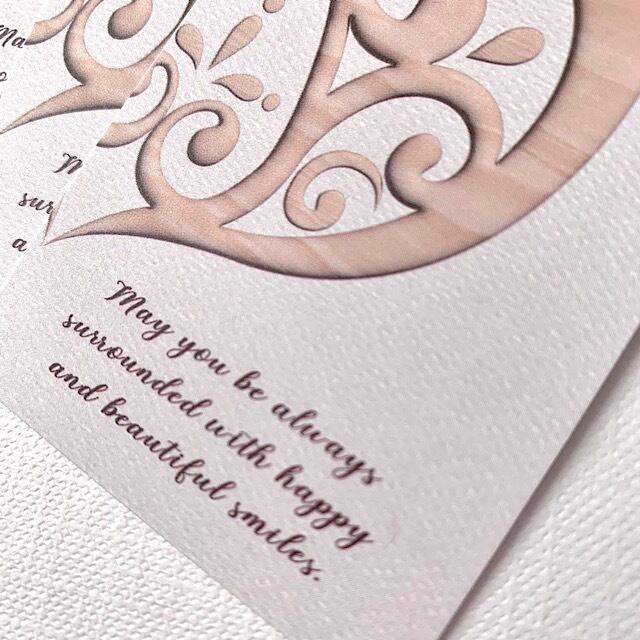 May you be always
surrounded with happy
and beautiful smiles.
Ma
M
sur
a